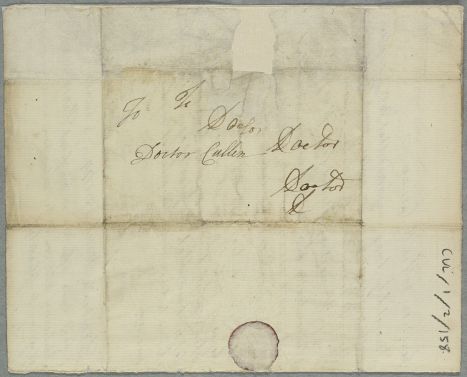 To To
Doctor
Doctor Cullen Doctor
Doctor
D
CUL/1/2/158